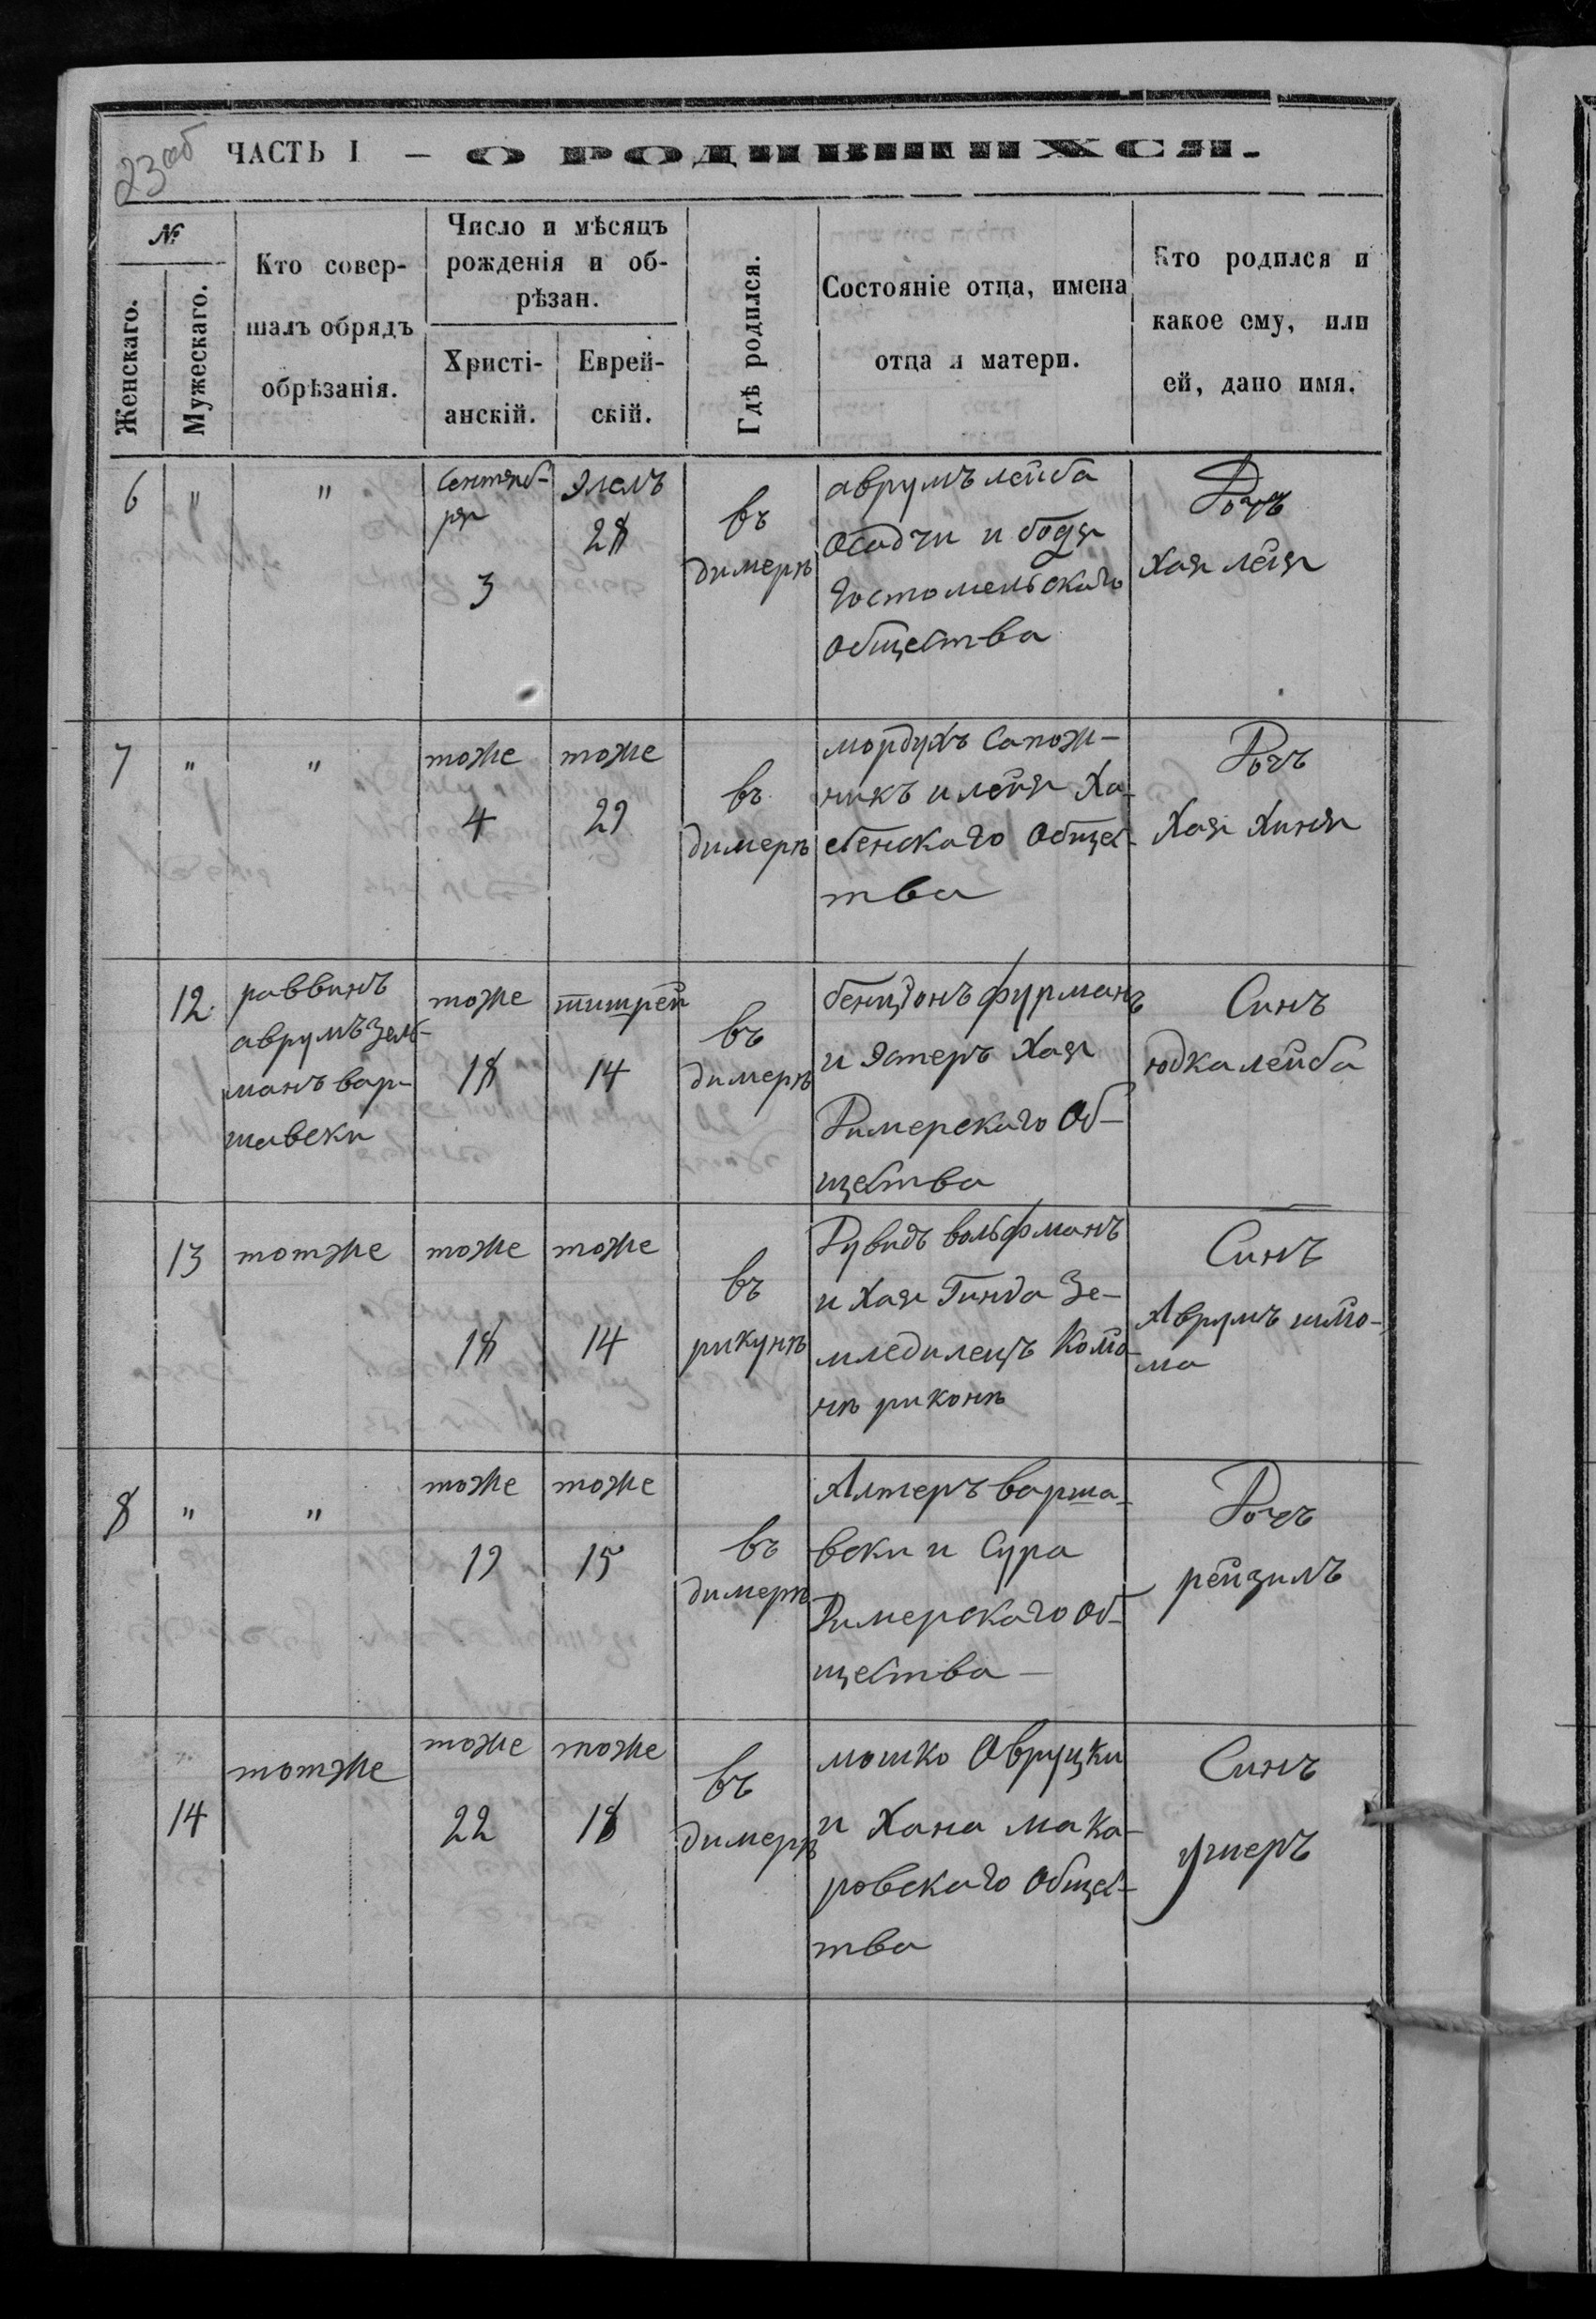 23 об
ЧАСТЬ I — О РОДИВШИХСЯ.
№
Женскаго.
Мужескаго.
Кто совер-
шалъ обрядъ
обрѣзанія.
Число и мѣсяцъ
рожденія и об-
рѣзан.
Христі-
анскій.
Еврей-
скій.
Гдѣ родился.
Состояніе отца, имена
отца и матери.
Кто родился и
какое ему, или
ей, дано имя.
6 " "
Сентяб-
ря
3
Элелъ
28
въ
димерѣ
аврумъ лейба
осадчи и бодя
Гостомельскаго
общества
Дочь
Хая лея
7 " "
тоже
4
тоже
29
въ
димерѣ
мордухъ Сапож-
никъ и лея Ха-
бенскаго общес-
тва
Дочъ
Хая Хиня
12
раввинъ
аврумъ Зель-
манъ вар-
шавски
тоже
18
тишрей
14
въ
димерѣ
бенционъ фурманъ
и Эстеръ Хая
Димерскаго Об-
щества
Синъ
юдка лейба
13
тотже
тоже
18
тоже
14
въ
рикунѣ
Дувидъ вольфманъ
и Хая Гинда Зе-
мледилецъ Коло-
нѣ риконѣ
Синъ
Аврумъ шло-
ма
8 " "
тоже
19
тоже
15
въ
димерѣ
Алтеръ варша-
вски и Сура
Димерскаго об-
щества —
Дочъ
рейзилъ
14
тотже
тоже
22
тоже
18
въ
димерѣ
мошко Овруцки
и Хана мака-
ровскаго общес-
тва
Синъ
ушеръ